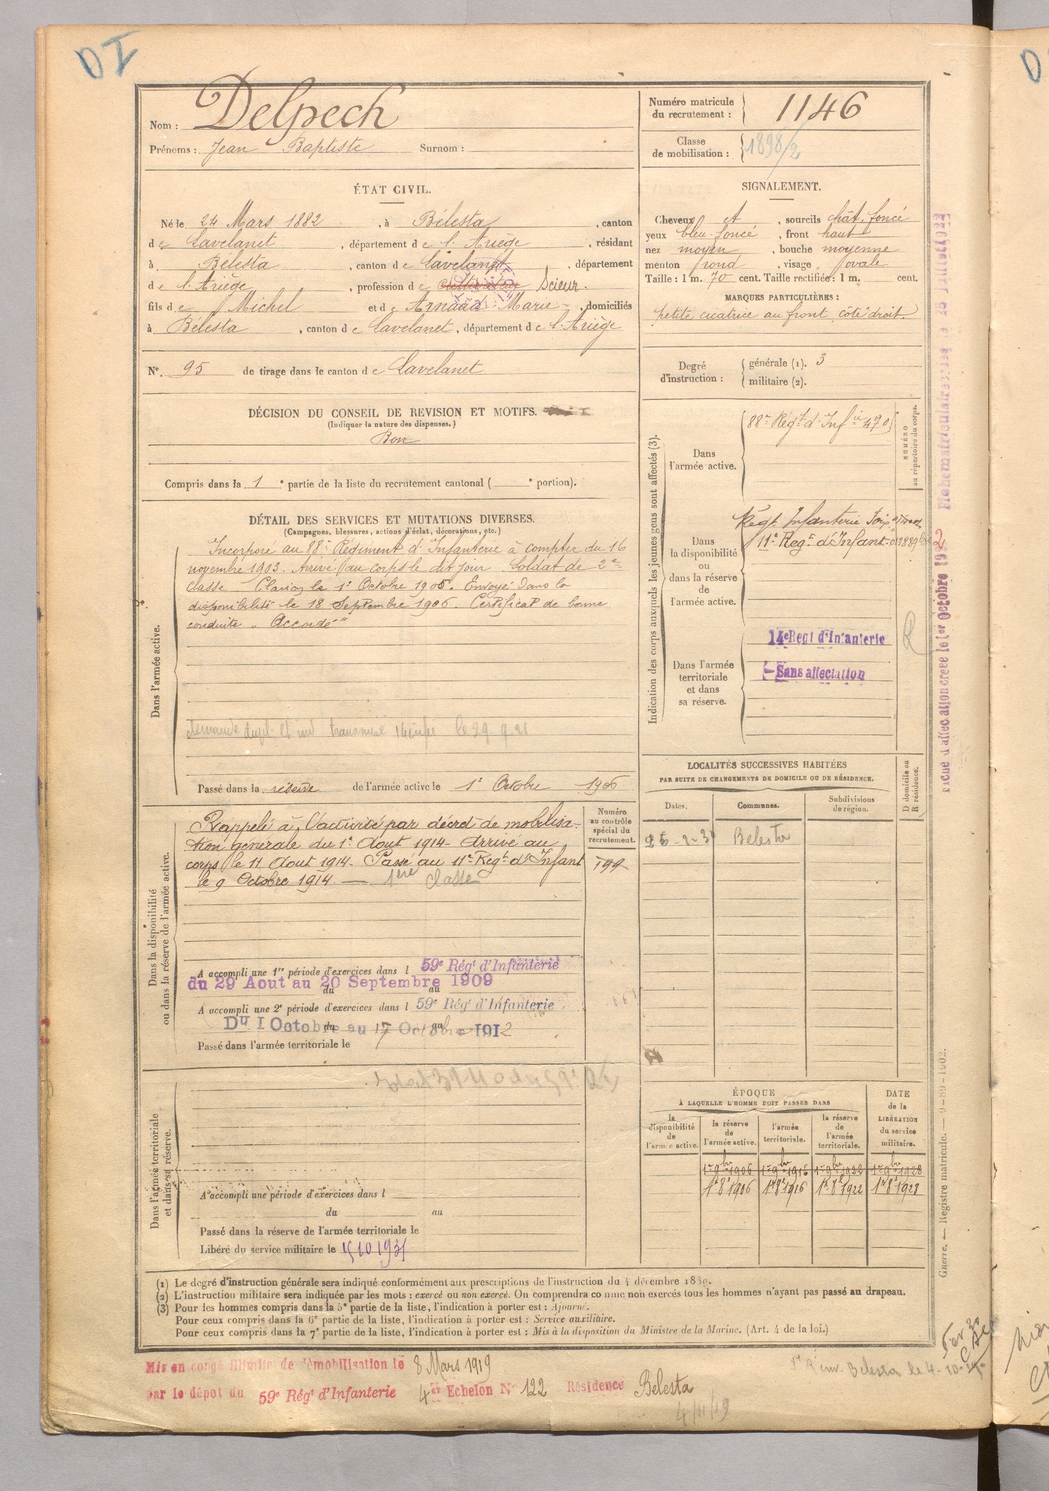 Nom : Delpech
Prénoms : Jean Baptiste Surnom :
Numéro matricule
du recrutement : 1146
Classe
de mobilisation : 1898/2
ÉTAT CIVIL.
Né le 24 Mars 1882, à Bélesta, canton
de Lavelanet, département de l'Ariège, résidant
à Bélesta, canton de Lavelanet, département
de l'Ariège, profession de Scieur.
fils de Michel et de Arnaud Marie, domiciliés
à Bélesta, canton de Lavelanet, département de l'Ariège
No. 95 de tirage dans le canton de Lavelanet
SIGNALEMENT.
Cheveux et, sourcils chât. foncé
yeux bleu foncé, front haut
nez moyen, bouche moyenne
menton rond, visage ovale
Taille : 1 m. 70 cent. Taille rectifiée : 1 m. cent.
MARQUES PARTICULIÈRES :
petite cicatrice au front, côté droit.
Degré
d'instruction :
générale (1). 3
militaire (2).
DÉCISION DU CONSEIL DE REVISION ET MOTIFS.
(Indiquer la nature des dispenses.)
Bon
Compris dans la 1e partie de la liste du recrutement cantonal ( e portion).
DÉTAIL DES SERVICES ET MUTATIONS DIVERSES.
(Campagnes, blessures, actions d'éclat, décorations, etc.)
Dans l'armée active.
Incorporé au 88e Régiment d'Infanterie à compter du 16
novembre 1903. Arrivé au corps le dit jour. Soldat de 2e
classe. Clairon le 1er Octobre 1905. Envoyé dans la
disponibilité le 18 Septembre 1906. Certificat de bonne
conduite "Accordé"
le 29.9.21
Passé dans la réserve de l'armée active le 1er Octobre 1906
Indication des corps auxquels les jeunes gens sont affectés (3).
NUMÉRO
au répertoire du corps.
Dans
l'armée active.
88e Régt d'Inf
Dans
la disponibilité
ou
dans la réserve
de
l'armée active.
Régt Infanterie
11e Régt d'Infant.
Dans l'armée
territoriale
et dans
sa réserve.
14e Régt d'Infanterie
Sans affectation
Dans la disponibilité
ou dans la réserve de l'armée active.
Numéro
au contrôle
spécial du
recrutement.
Rappelé à l'activité par décret de mobilisa-
tion générale du 1er Août 1914. Arrivé au
corps le 11 Août 1914. Passé au 11e Régt d'Infant
le 9 Octobre 1914. 1ère classe
A accompli une 1re période d'exercices dans l 59e Régt d'Infanterie
du 29 Aout au 20 Septembre 1909
A accompli une 2e période d'exercices dans l 59e Régt d'Infanterie
Du 1 Octobre au 17 Octobre 1912
Passé dans l'armée territoriale le
LOCALITÉS SUCCESSIVES HABITÉES
PAR SUITE DE CHANGEMENTS DE DOMICILE OU DE RÉSIDENCE.
Dates. Communes. Subdivisions
de région. D domicile ou
R résidence.
Belesta
Dans l'armée territoriale
et dans sa réserve.
A accompli une période d'exercices dans l
du au
Passé dans la réserve de l'armée territoriale le
Libéré du service militaire le
ÉPOQUE
À LAQUELLE L'HOMME DOIT PASSER DANS
DATE
de la
LIBÉRATION
du service
militaire.
la
disponibilité
de
l'armée active.
la réserve
de
l'armée active.
l'armée
territoriale.
la réserve
de
l'armée
territoriale.
1er 9bre 1906 1er 9bre 1916 1er 9bre 1922 1er 9bre 1928
1er 8bre 1906 1er 8bre 1916 1er 8bre 1922 1er 8bre 1928
(1) Le degré d'instruction générale sera indiqué conformément aux prescriptions de l'instruction du 4 décembre 1889.
(2) L'instruction militaire sera indiquée par les mots : exercé ou non exercé. On comprendra comme non exercés tous les hommes n'ayant pas passé au drapeau.
(3) Pour les hommes compris dans la 5e partie de la liste, l'indication à porter est : Ajourné.
Pour ceux compris dans la 6e partie de la liste, l'indication à porter est : Service auxiliaire.
Pour ceux compris dans la 7e partie de la liste, l'indication à porter est : Mis à la disposition du Ministre de la Marine. (Art. 4 de la loi.)
Guerre. — Registre matricule. — 9-89-1902.
Mis en congé illimité de démobilisation le 8 Mars 1919
par le dépôt du 59e Régt d'Infanterie 4e Echelon No 122 Résidence Bélesta
Belesta le 4-10-
4/11/19